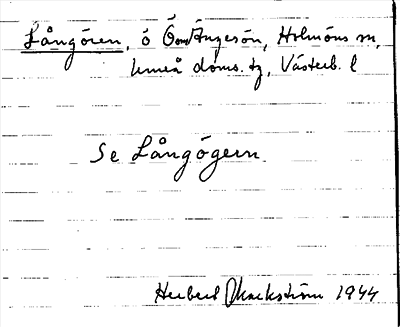 Långören, ö Ö om Ängesön, Holmöns sn,
Umeå doms. tg, Västerb. l
Se Långögern
Herbert Markström 1944